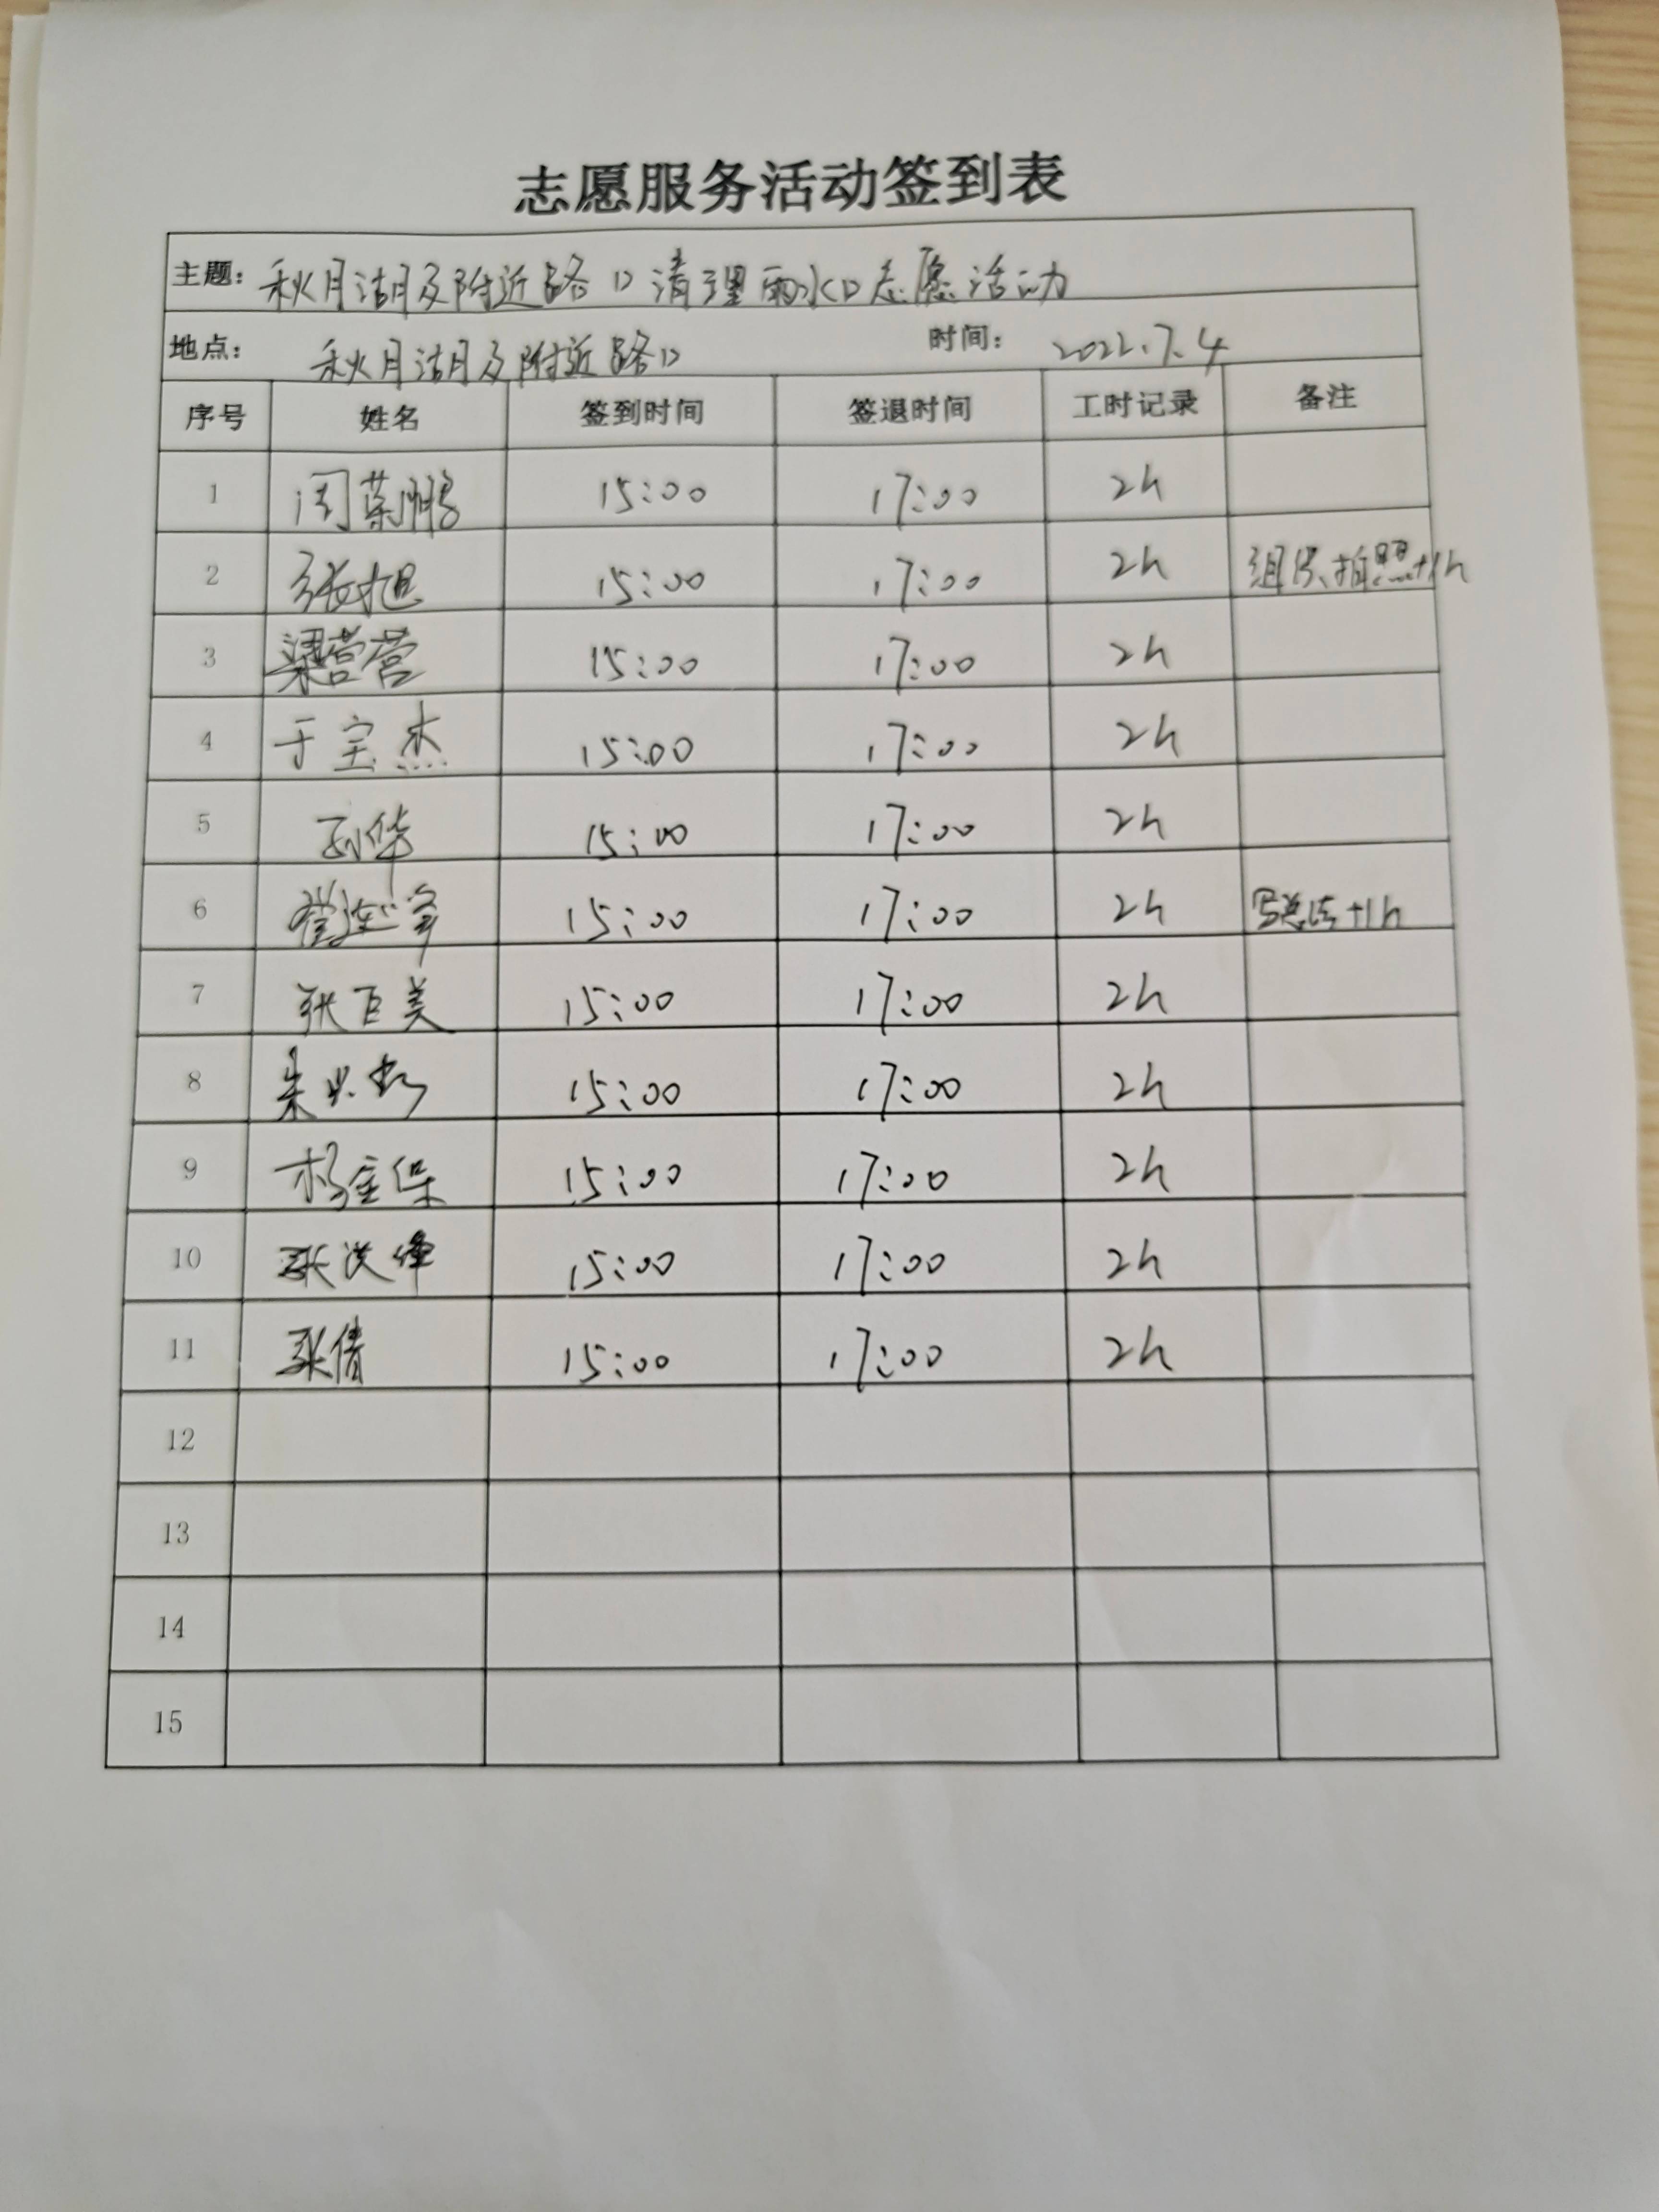 志愿服务活动签到表
主题： 秋月湖及附近路口清理雨水口志愿活动
地点： 秋月湖及附近路口 时间： 2022.7.4
序号 姓名 签到时间 签退时间 工时记录 备注
1 周荣鹏 15:00 17:00 2h
2 张旭 15:00 17:00 2h 组织、拍照+1h
3 梁营营 15:00 17:00 2h
4 于宝杰 15:00 17:00 2h
5 孙华 15:00 17:00 2h
6 15:00 17:00 2h 写总结+1h
7 张百美 15:00 17:00 2h
8 15:00 17:00 2h
9 杨宝保 15:00 17:00 2h
10 张洪伟 15:00 17:00 2h
11 张倩 15:00 17:00 2h
12
13
14
15